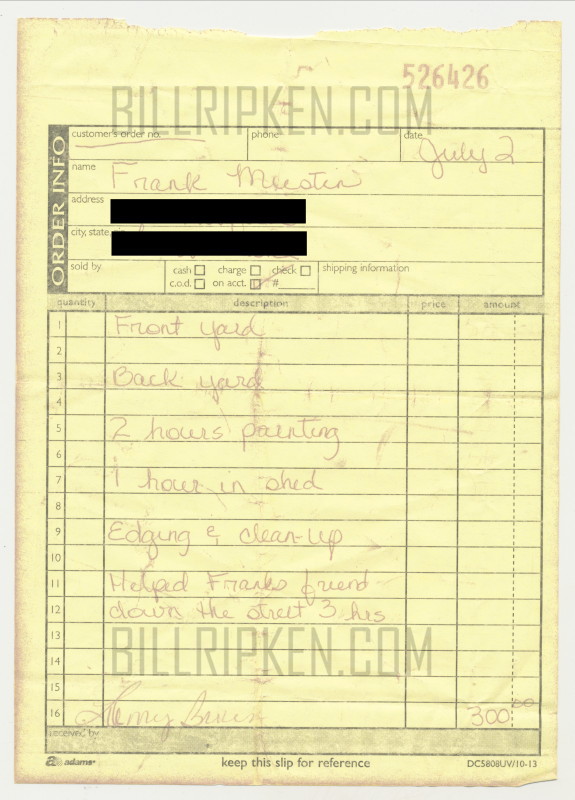 526426
BILLRIPKEN.COM
ORDER INFO
customer's order no. phone date July 2
name Frank
address
city, state, zip
sold by cash charge check shipping information
c.o.d. on acct. #
quantity description price amount
1 Front yard
2
3 Back yard
4
5 2 hours painting
6
7 1 hour in shed
8
9 Edging & clean-up
10
11 Helped Franks friend
12 down the street 3 hrs
13
14
BILLRIPKEN.COM
15
16 300.00
received by
adams keep this slip for reference DC5808UV/10-13